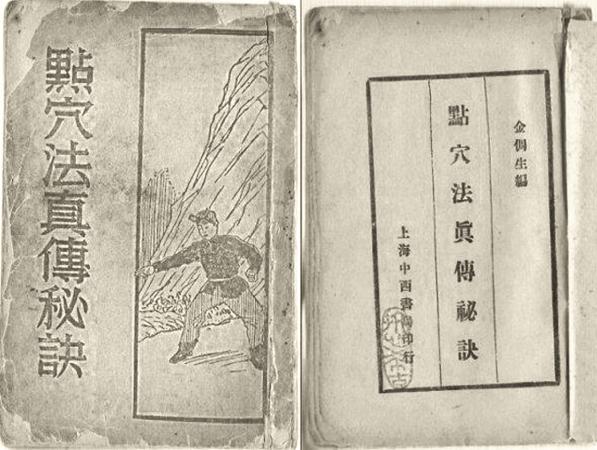 點穴法真傳秘訣
金倜生編
點穴法眞傳祕訣
上海中西書局印行